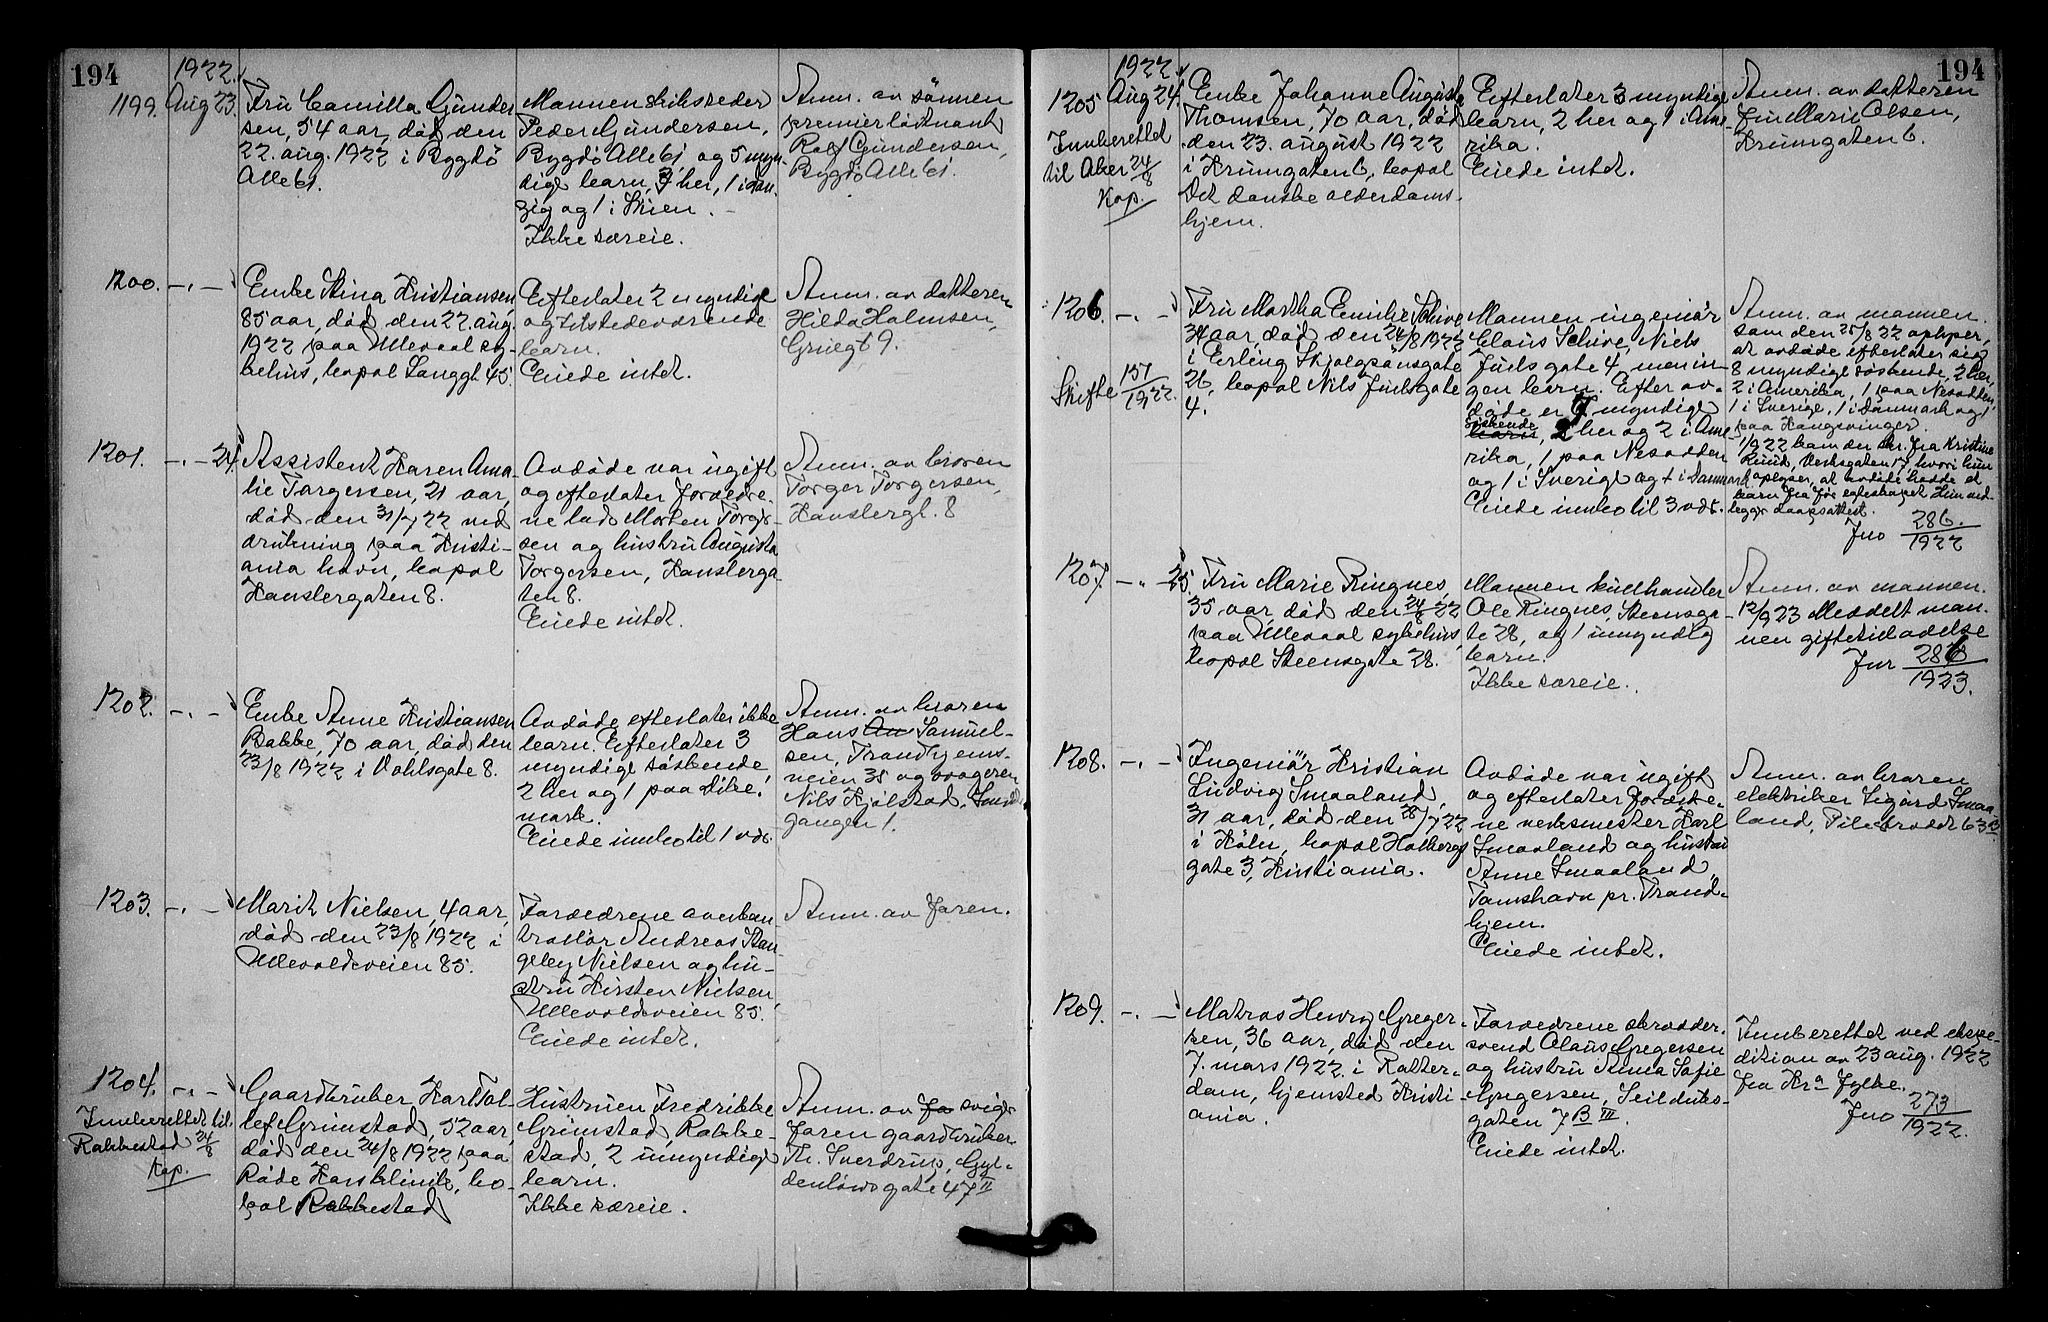 194
1922.
1199. Aug 23.
Fru Camilla Gunder-
sen, 54 aar, død den
22. aug. 1922 i Bygdø
Alle 61.
Mannen
Peder Gundersen,
Bygdø Alle 61 og 5 myn-
dige barn, 3 her, 1 i Dan-
zig og 1 i Skien.
Ikke særeie.
Anm. av sønnen
premierløitnant
Rolf Gundersen,
Bygdø Alle 61.
1200. -"-
Enke Stina Kristiansen,
85 aar, død den 22. aug.
1922 paa Ullevaal sy-
kehus, bopal Langgt. 45.
Efterlater 2 myndige
og tilstedeværende
barn.
Eiede intet.
Anm. av datteren
Hilda Halmsen,
Griegt 9.
1201. -"- 24.
Assistent Karen Ama-
lie Torgersen, 21 aar,
død den 31/7 22 ved
drukning paa Kristi-
ania havn, bopal
Kanslergaten 8.
Avdøde var ugift
og efterlater foreldre-
ne lods Morten Torger-
sen og hustru Augusta
Torgersen, Kanslerga-
ten 8.
Eiede intet.
Anm. av broren
Torger Torgersen,
Kanslergt. 8
1202. -"-
Enke Anne Kristiansen
Bakke, 70 aar, død den
23/8 1922 i Dahlsgate 8.
Avdøde efterlater ikke
barn. Efterlater 3
myndige søskende,
2 her og 1 paa Eike-
mark.
Eiede innbo til 1 vdr.
Anm. av broren
Hans Samuel-
sen, Trondhjems-
veien 35 og
Nils Kjølstad,
gangen 1.
1203. -"-
Marit Nielsen, 4 aar,
død den 23/8 1922 i
Ullevoldsveien 85.
Forældrene overkon-
trollør Andreas Stan-
geby Nielsen og hu-
stru Kirsten Nielsen,
Ullevoldsveien 85.
Eiede intet.
Anm. av faren.
1204. -"-
Innberettet til
Rakkestad 24/8
Kop.
Gaardbruker Karl Tol-
lef Grimstad, 52 aar,
død den 24/8 1922 paa
Røde Kors klinik, bo-
pal Rakkestad
Hustruen Fredrikke
Grimstad, Rakke-
stad, 2 umyndige
barn.
Ikke særeie.
Anm. av fa sviger-
faren gaardbruker
Th. Sverdrup, Gyl-
denløvs gate 47 II
194
1922.
1205. Aug 24.
Innberettet
til Aker 24/8
Kop.
Enke Johanne Augusta
Thomsen, 70 aar, død
den 23. august 1922
i Krumgaten 6, bopal
Det danske alderdoms-
hjem.
Efterlater 3 myndige
barn, 2 her og 1 i Ame-
rika.
Eiede intet.
Anm. av datteren
Fru Marie Olsen,
Krumgaten 6.
1206. -"-
Skifte 151/1922.
Fru Martha Emilie Schive
34 aar, død den 24/8 1922
i Erling Skjalgssønsgate
26, bopal Nils Juelsgate
4.
Mannen ingeniør
Claus Schive, Niels
Juels gate 4, men in-
gen barn. Efter av-
døde er 7 myndige
søskende
barn, 2 her og 2 i Ame-
rika, 1 paa Nesodden
og 1 i Sverige og 1 i Danmark
Eiede innbo til 3 vdr.
Anm. av mannen
som den 25/8 22 oplyser,
at avdøde efterlater sig
8 myndige søskende, 2 her,
2 i Amerika, 1 paa Nesodden,
1 i Sverige, 1 i Danmark og 1
paa Kongsvinger.
1/9 22 kom der br. fra Kristine
Ruud, Verksgaten 17, hvori hun
oplyser, at avdøde hadde et
barn fra før egteskapet. Hun ved-
legger daapsattest.
Jno 286./1922
1207. -"- 25.
Fru Marie Ringnes,
35 aar, død den 24/8 22
paa Ullevaal sykehus,
bopal Steensgate 28.
Mannen kullhandler
Ole Ringnes, Steensga-
te 28, og 1 umyndig
barn.
Ikke særeie.
Anm. av mannen.
12/9 23 Meddelt man-
nen giftetilladelse
Jnr 286/1923.
1208. -"-
Ingeniør Kristian
Ludvig Smaaland,
31 aar, død den 28/7 22
i Köln, bopal Holbergs
gate 3, Kristiania.
Avdøde var ugift
og efterlater foreldre-
ne verksmester Karl
Smaaland og hustru
Anne Smaaland,
Tamshavn pr. Trond-
hjem.
Eiede intet.
Anm. av broren
elektriker Sigurd Smaa-
land, Pilestrædet 63 B.
1209. -"-
Matros Henry Greger-
sen, 36 aar, død den
7. mars 1922 i Rotter-
dam, hjemsted Kristi-
ania.
Forældrene skrædder-
svend Olaus Gregersen
og hustru Anna Sofie
Gregersen, Seilduks-
gaten 7 B III.
Eiede intet.
Innberettet ved ekspe-
dition av 23 aug. 1922
fra Kra Fylke.
Jno 273/1922.